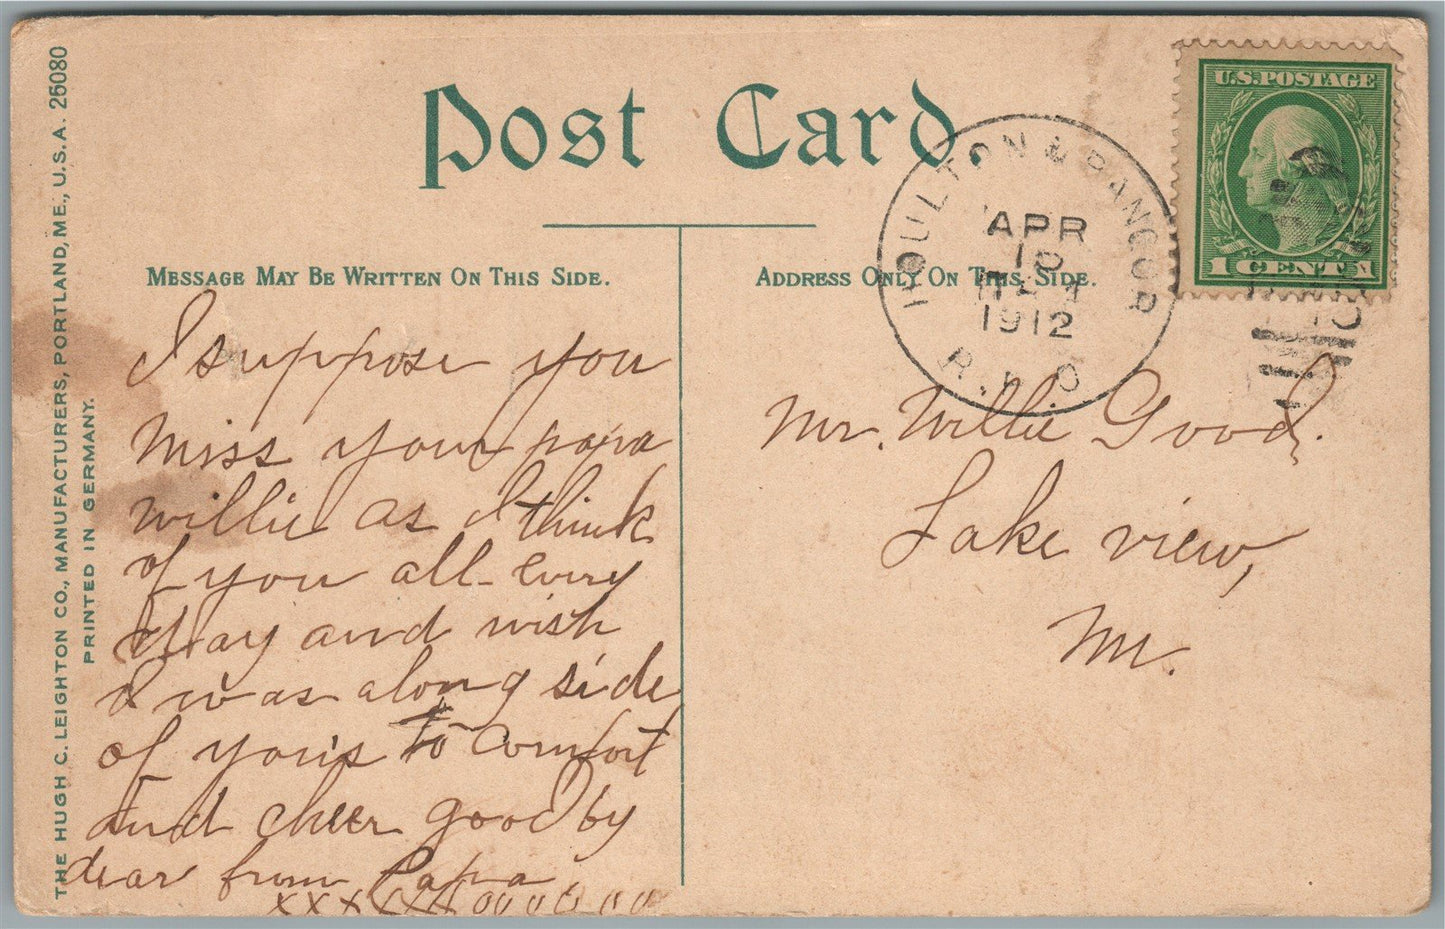 Post Card.
MESSAGE MAY BE WRITTEN ON THIS SIDE.
ADDRESS ONLY ON THIS SIDE.
THE HUGH C. LEIGHTON CO., MANUFACTURERS, PORTLAND, ME., U.S.A. 26080
PRINTED IN GERMANY.
U.S. POSTAGE
1 CENT 1
HOULTON & BANGOR
APR
10
1912
R.P.O.
I suppose you
miss your papa
willie as I think
of you all every
day and wish
I was along side
of you's to comfort
and cheer good by
dear from Papa
xxxxxxx oooooooo
Mr. Willie Good.
Lake view,
Me.